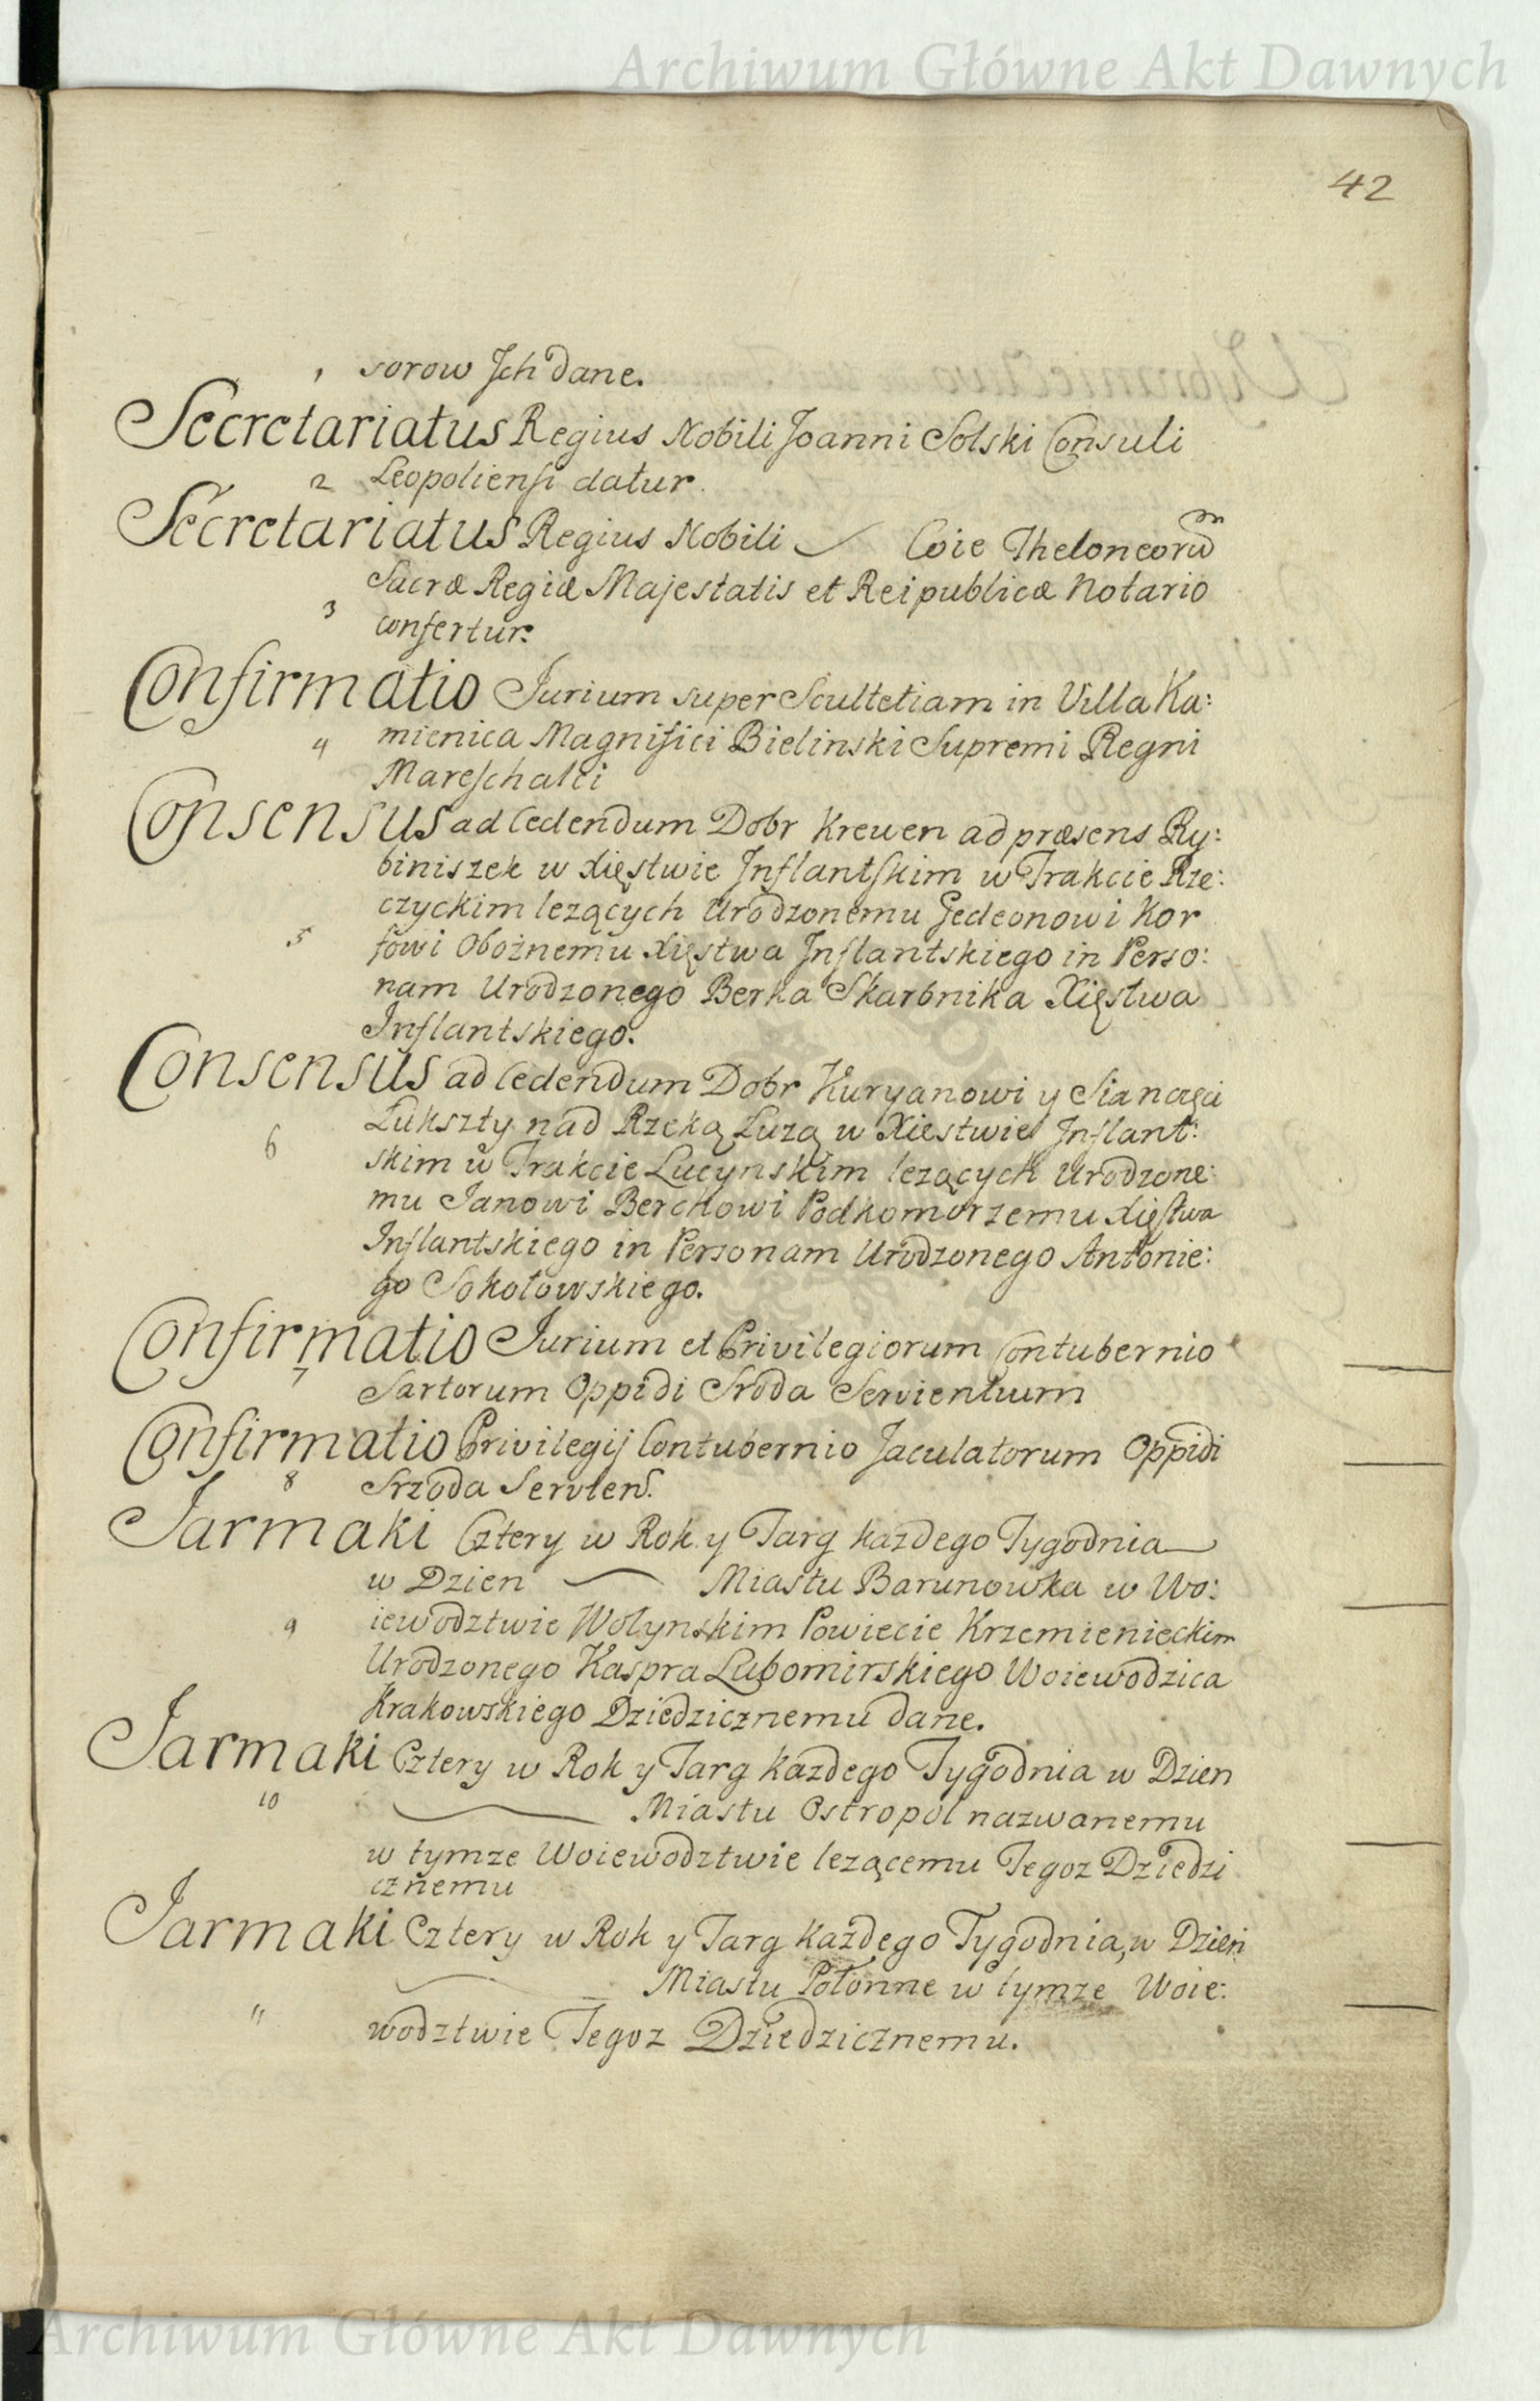 Archiwum Główne Akt Dawnych
42
1 sorow Jch dane.
Secretariatus Regius Nobili Joanni Solski Consuli
2 Leopoliensi datur.
Secretariatus Regius Nobili — Coie Theloneorũ
Sacræ Regiæ Majestatis et Reipublicæ Notario
3 confertur.
Confirmatio Jurium super Scultetiam in Villa Ka:
4 mienica Magnifici Bielinski Supremi Regni
Mareschalci
Consensus ad Cedendum Dobr Krewen ad præsens Ry:
biniszek w Xięstwie Jnflantskim w Trakcie Rze:
czyckim lezących Urodzonemu Gedeonowi Kor
5 fowi Oboznemu Xięstwa Jnflantskiego in Perso:
nam Urodzonego Berka Skarbnika Xięstwa
Jnflantskiego.
Consensus ad Cedendum Dobr Kuryanowi y Sianozęci
Lukszty nad Rzeką Luzą w Xiestwie Jnflant:
6 skim w Trakcie Lucynskim lezących Urodzone:
mu Janowi Berchowi Podkomorzemu Xięstwa
Jnflantskiego in Personam Urodzonego Antonie:
go Sokołowskiego.
Confirmatio Jurium et Privilegiorum Contubernio
7 Sartorum Oppidi Sroda Servientium
Confirmatio Privilegij Contubernio Jaculatorum Oppidi
8 Srzoda Servien.
Jarmaki Cztery w Rok y Targ kazdego Tygodnia
w Dzien — Miastu Barunowka w Wo:
9 iewodztwie Wolynskim Powiecie Krzemienieckim
Urodzonego Kaspra Lubomirskiego Woiewodzica
Krakowskiego Dziedzicznemu dane.
Jarmaki Cztery w Rok y Targ Kazdego Tygodnia w Dzien
10 — Miastu Ostropol nazwanemu
w tymze Woiewodztwie lezącemu Tegoz Dziedzi
cznemu
Jarmaki Cztery w Rok y Targ Kazdego Tygodnia, w Dzien
— Miastu Połonne w tymze Woie:
11 wodztwie Tegoz Dziedzicznemu.
Archiwum Główne Akt Dawnych